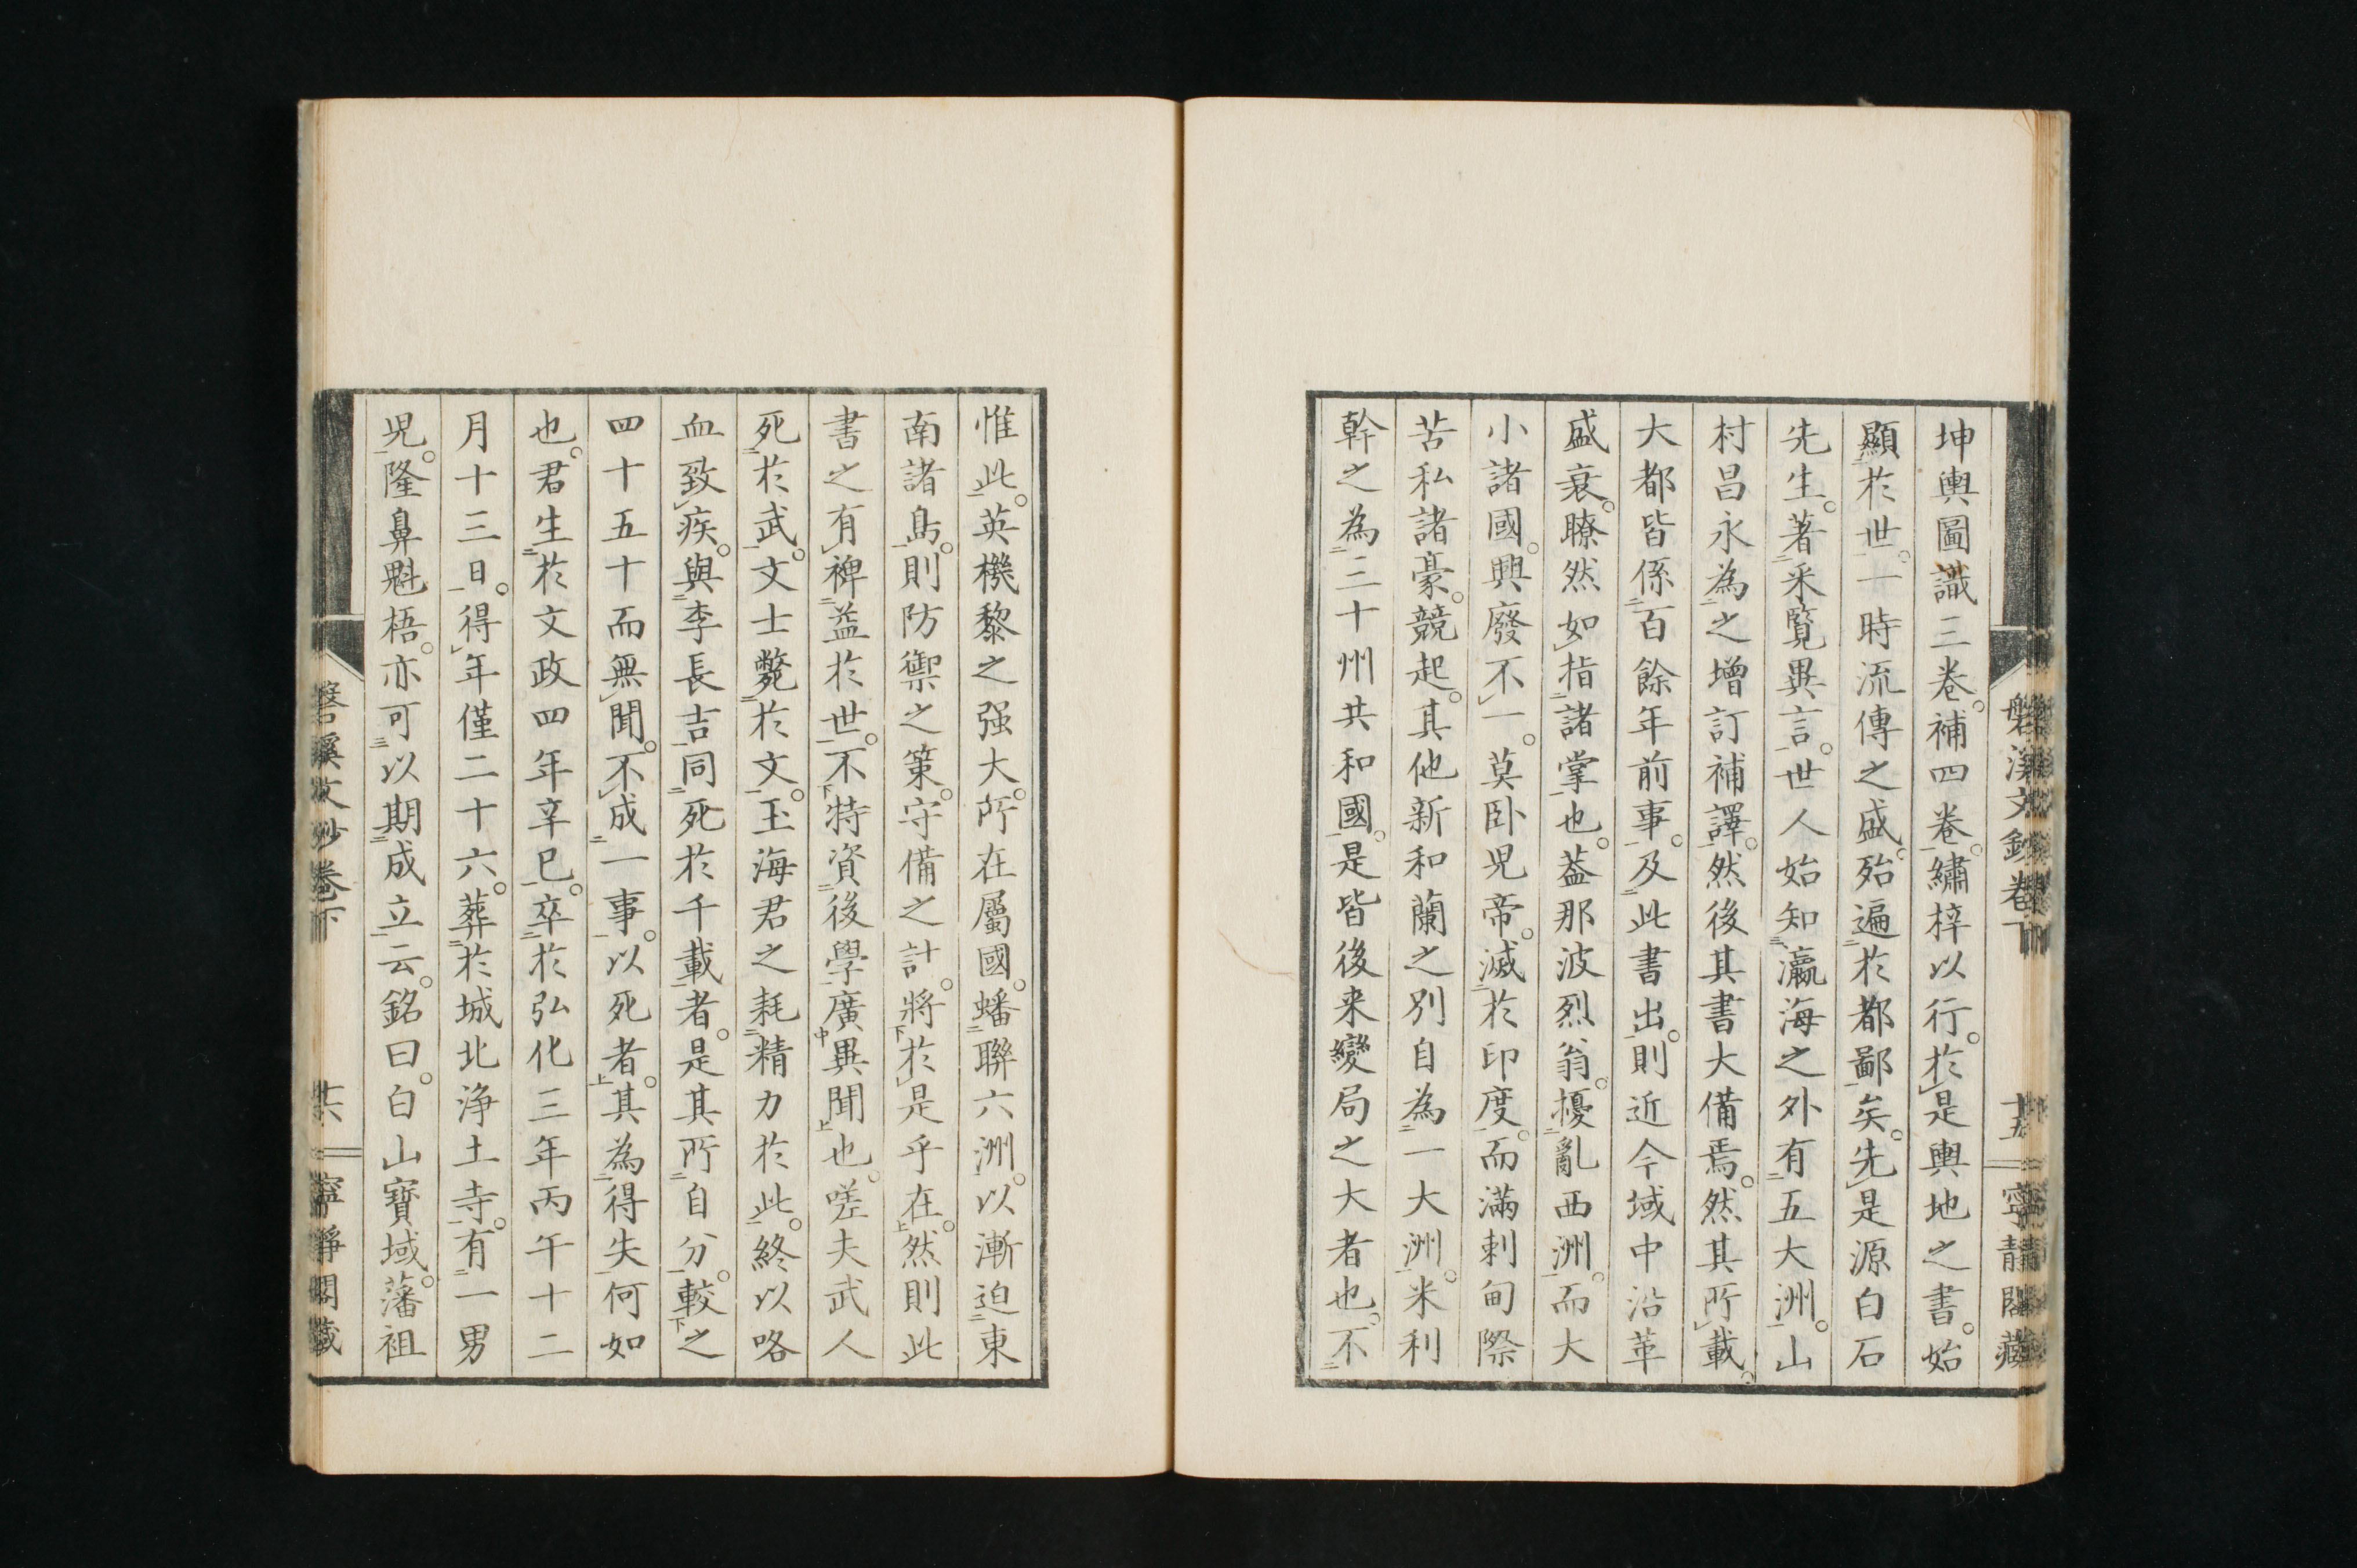 坤輿圖識三卷。補四卷。繡梓以行。於是輿地之書。始
顯於世。一時流傳之盛。殆遍於都鄙矣。先是源白石
先生。著采覧異言。世人始知瀛海之外有五大洲。山
村昌永為之增訂補譯。然後其書大備焉。然其所載。
大都皆係百餘年前事。及此書出。則近今域中沿革
盛衰。瞭然如指諸掌也。蓋那波烈翁。擾亂西洲。而大
小諸國。興廢不一。莫卧児帝。滅於印度。而滿剌甸際
苦私諸豪。競起。其他新和蘭之別自為一大洲。米利
幹之為三十州共和國。是皆後来變局之大者也。不
磐溪文鈔卷下
十五
寧靜閣藏
惟此。英機黎之强大。所在屬國。蟠聯六洲。以漸迫東
南諸島。則防禦之策。守備之計。將於是乎在。然則此
書之有裨益於世。不特資後學廣異聞也。嗟夫武人
死於武。文士斃於文。玉海君之耗精力於此。終以咯
血致疾。與李長吉同死於千載者。是其所自分。較之
四十五十而無聞。不成一事。以死者。其為得失何如
也。君生於文政四年辛巳。卒於弘化三年丙午十二
月十三日。得年僅二十六。葬於城北浄土寺。有一男
児。隆鼻魁梧。亦可以期成立云。銘曰。白山寶域。藩祖
磐溪文鈔卷下
十六
寧靜閣藏